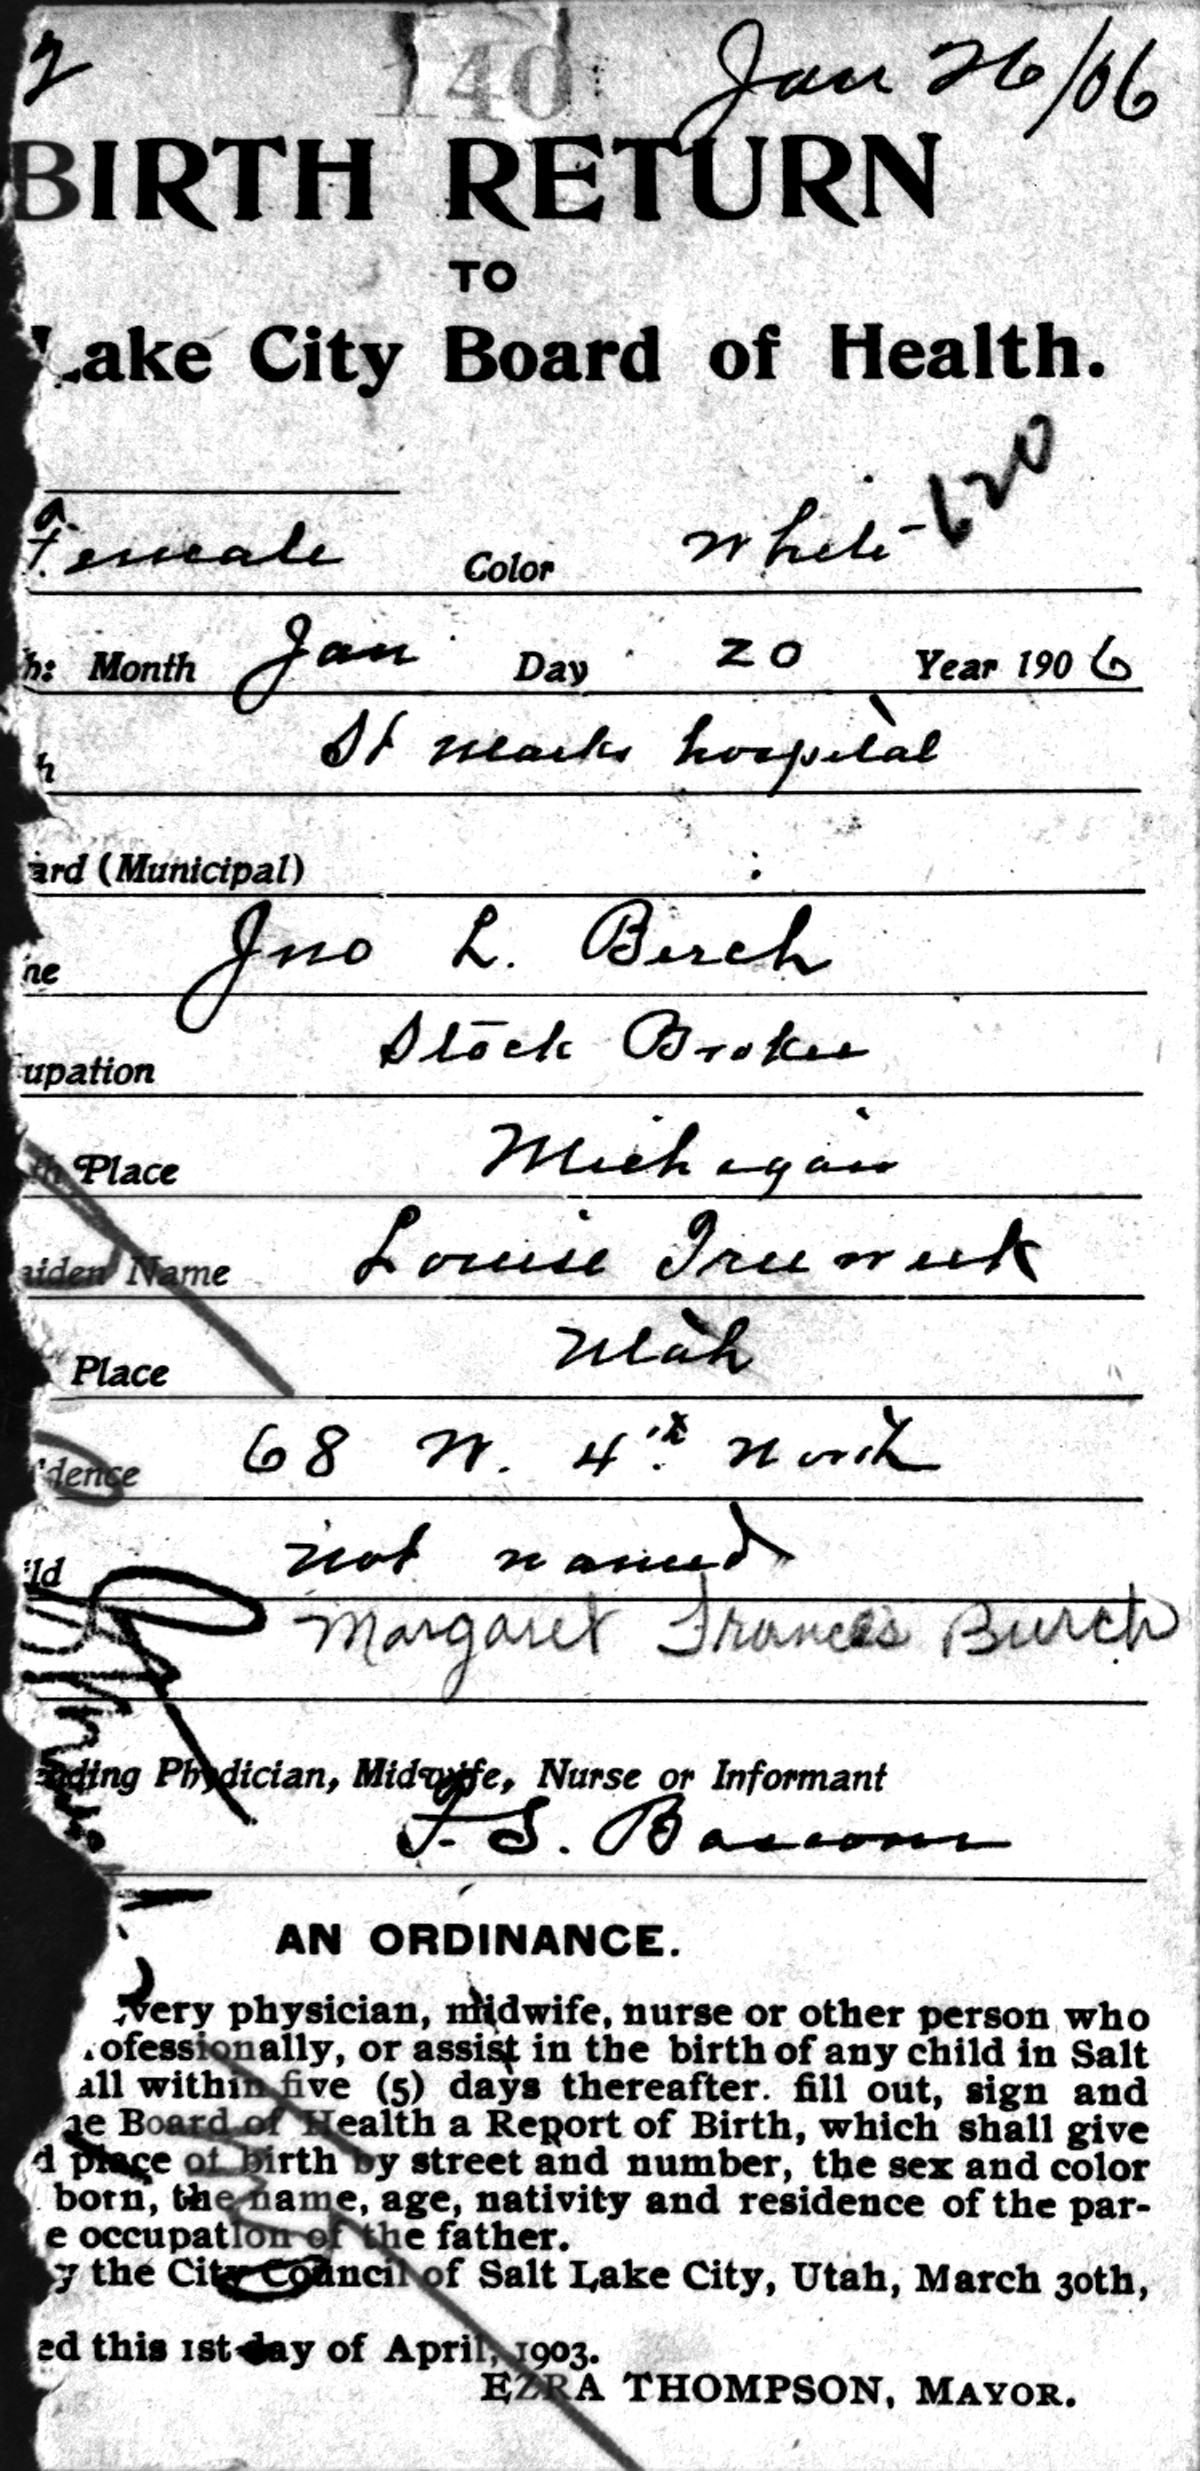 140 Jan 26/06
BIRTH RETURN
TO
Lake City Board of Health.
120
Female Color White
h: Month Jan Day 20 Year 1906
h St Marks hospital
ard (Municipal)
ne Jno L. Berch
upation Stock Broker
th Place Michigan
aiden Name Louise Treweek
Place Utah
dence 68 W. 4th North
ild not named
Margaret Frances Burch
ding Physician, Midwife, Nurse or Informant
F. S. Bascom
AN ORDINANCE.
very physician, midwife, nurse or other person who
ofessionally, or assist in the birth of any child in Salt
all within five (5) days thereafter. fill out, sign and
he Board of Health a Report of Birth, which shall give
d place of birth by street and number, the sex and color
born, the name, age, nativity and residence of the par-
e occupation of the father.
y the City Council of Salt Lake City, Utah, March 30th,
ed this 1st day of April, 1903.
EZRA THOMPSON, MAYOR.